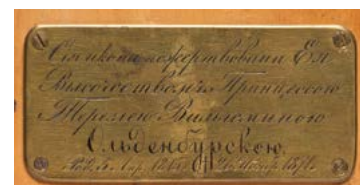 Сiя икона пожертвована Ея
Высочествомъ Принцессою
Терезiею Вильгельминою
Ольденбургскою.